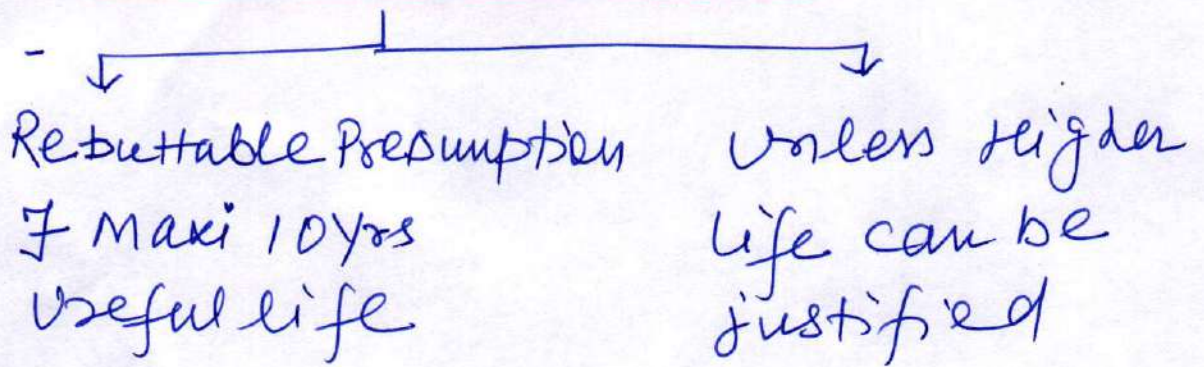 -
Rebuttable Presumption
of Maxi 10 Yrs
Useful life
Unless Higher
life can be
justified